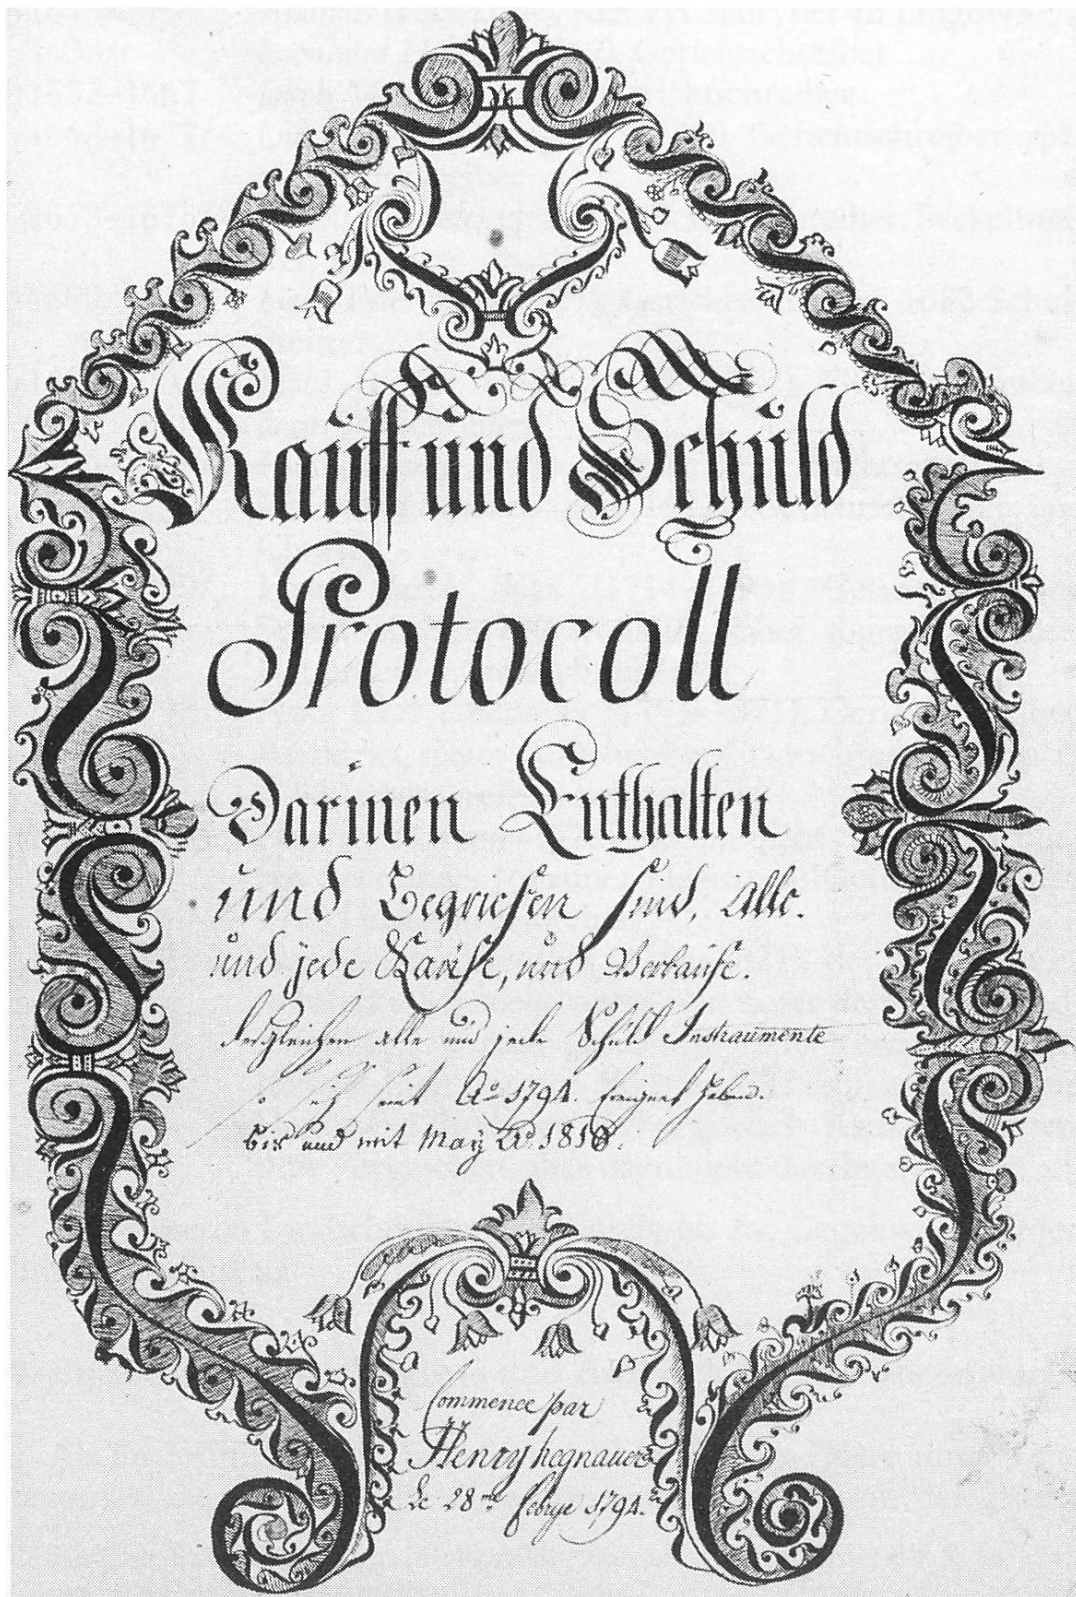 Kauff und Schuld
Protocoll
Darinen Enthalten
und Begriefen sind, alle.
und jede Käuffe, und Verkäuffe.
dergleichen alle und jede Schuld Instraumente
so sich seint Aō 1794. Ereignet haben.
bis und mit May Aō 1818.
Commencé par
Henry hegnauer
Le 28me febrye 1794.